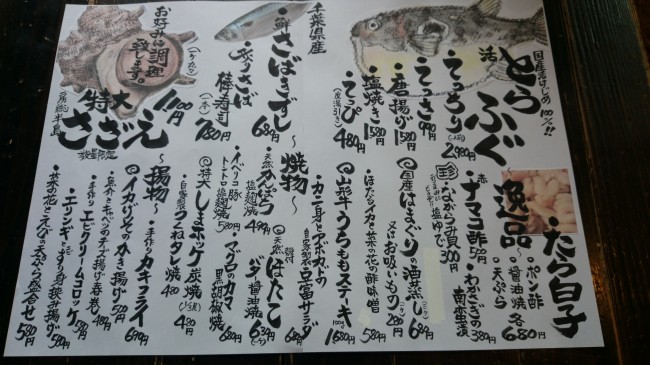 国産まけじめ100%!!
活とらふぐ
・てっちり 2,980円
・てっさ 990円
・唐揚げ 1,580円
・塩焼き 1,580円
・てっぴ(皮湯引) 480円
千葉県産
・鮮さばきずし 680円
・炙りさば棒寿司(一本) 780円
お好みに調理致します。
特大さざえ 1100円
(房総半島)
数量限定
・たら白子
◎ポン酢
◎醤油焼
◎天ぷら
各680円
〜逸品〜
・赤ナマコ酢 580円
・わかさぎの南蛮漬 380円
・ながらみ貝塩ゆで 300円
◎国産はまぐりの酒蒸し 680円
又はお吸いもの 280円
・ほたるイカと菜の花の酢味噌 580円
◎山形牛うちももステーキ 100g 1,680円
・カニ身とアボカドの自家製豆腐サラダ 680円
〜焼物〜
・天然かんぱち塩麹焼 490円
◎天然はたこバタ醤油焼 630円
・イベリコ豚トントロ塩麹焼 580円
・マグロのカマ黒胡椒焼 680円
◎特大しまホッケ炭焼
・自家製つくねタレ焼 480円
〜揚物〜
・手作りカキフライ 690円
◎イカげりそのかき揚げ 580円
・豚巾とキャベツのチーズ揚げ春巻 480円
・手作りエビクリームコロッケ 580円
・エリンギとすり身挟み揚げ 580円
・菜の花とえびの天ぷら盛合せ 580円